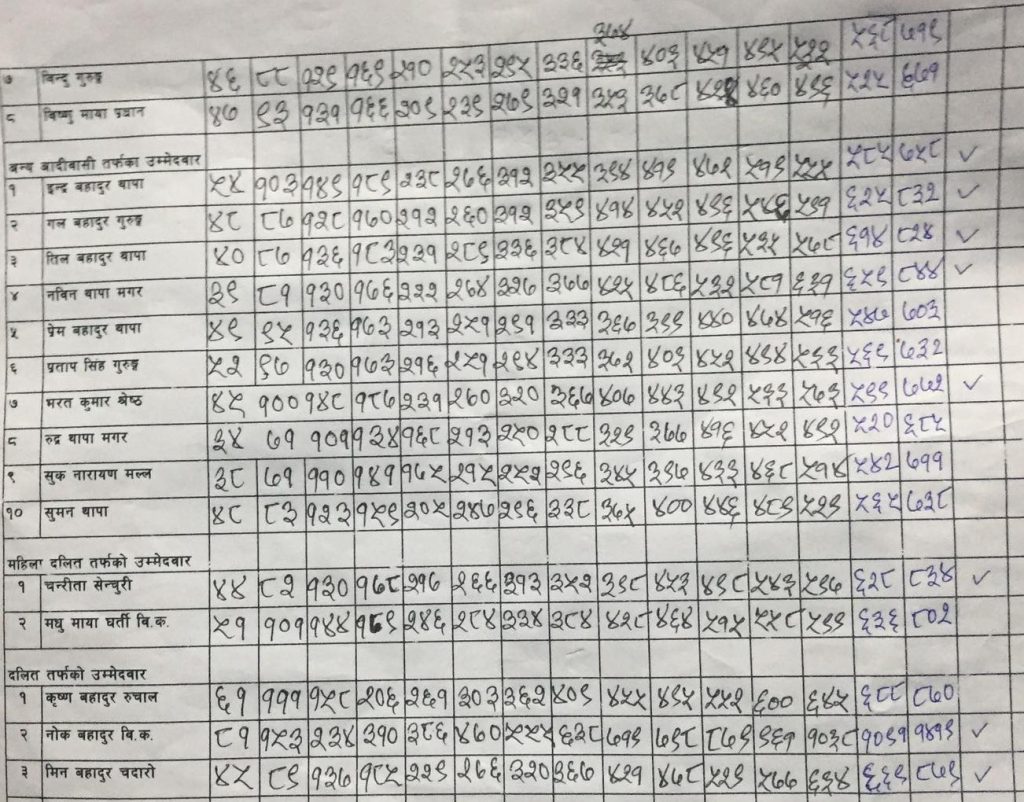 ७ बिन्दु गुरुङ ४६ ८८ १२९ १६९ २१० २५३ २९५ ३३६ ३७४ ४०३ ४५१ ४९५ ५२२ ५६८ ७१९
८ बिष्णु माया प्रधान ४७ ९३ १३१ १६६ २०९ २३९ २७९ ३२१ ३५३ ३६८ ४६० ४९६ ५२५ ६७१
अन्य आदीबासी तर्फका उम्मेदबार
१ इन्द्र बहादुर थापा ५४ १०३ १४९ १८९ २३८ २७६ ३१२ ३५५ ३९४ ४१९ ४७२ ५१९ ५५५ ५८५ ७५८ ✓
२ गल बहादुर गुरुङ ४८ ८७ १२८ १७० २१२ २६० ३१२ ३५९ ४१४ ४५२ ४९६ ५४६ ५९१ ६२५ ८३२ ✓
३ तिल बहादुर थापा ४० ८७ १३६ १८३ २३१ २८९ ३३६ ३८४ ४२१ ४६७ ४९६ ५३५ ५७८ ६१४ ८२४ ✓
४ नबिन थापा मगर ३९ ८१ १३० १७६ २२२ २७४ ३२७ ३७७ ४२५ ४८६ ५३२ ५८१ ६३१ ६७९ ८४४ ✓
५ प्रेम बहादुर थापा ४९ ९५ १३६ १७३ २१३ २५१ २९१ ३३३ ३६७ ३९९ ४४० ४७४ ५१६ ५४७ ७०३
६ प्रताप सिंह गुरुङ ५२ ९७ १३० १७३ २१६ २५१ २९४ ३३३ ३७२ ४०९ ४५२ ४९४ ५३६ ५६९ ७३२
७ भरत कुमार श्रेष्ठ ४९ १०० १४८ १८७ २३१ २७० ३२० ३६७ ४०७ ४४३ ४९२ ५३३ ५७३ ५९९ ७७२ ✓
८ रुद्र थापा मगर ३४ ७१ १०१ १३४ १६८ २१३ २५० २८८ ३२९ ३७७ ४१६ ४५२ ४९२ ५२० ६८५
९ सुक नारायण मल्ल ३८ ७१ ११० १४१ १७५ २१५ २५२ २९६ ३४५ ३९७ ४३३ ४६८ ५१४ ५४२ ७११
१० सुमन थापा ४८ ८३ १२३ १५९ २०५ २४७ २९६ ३३८ ३७५ ४०० ४४६ ४८९ ५२९ ५६५ ७३८
महिला दलित तर्फको उम्मेदबार
१ चन्रीता सेन्चुरी ४४ ८२ १३० १७८ २१७ २६६ ३१३ ३५२ ३९८ ४५३ ४९८ ५४३ ५९७ ६२८ ८३४ ✓
२ मधु माया घर्ती बि.क. ५१ १०१ १४४ १८९ २४६ २८४ ३३४ ३८४ ४२८ ४६४ ५१५ ५५८ ५९९ ६३६ ८०२
दलित तर्फको उम्मेदबार
१ कृष्ण बहादुर रुचाल ६१ १११ १५८ २०६ २६१ ३०३ ३६२ ४०९ ४५५ ४९५ ५५२ ६०० ६४५ ६८८ ८७०
२ नोक बहादुर बि.क. ८१ १५३ २३४ ३१० ३८६ ४७० ५५५ ६३८ ७१९ ७९८ ८७९ ९६१ १०३८ १०९१ १४१९ ✓
३ मिन बहादुर चदारो ४५ ८९ १३७ १८५ २२९ २७६ ३२० ३६७ ४२१ ४७८ ५२९ ५७७ ६३४ ६६९ ८७९ ✓